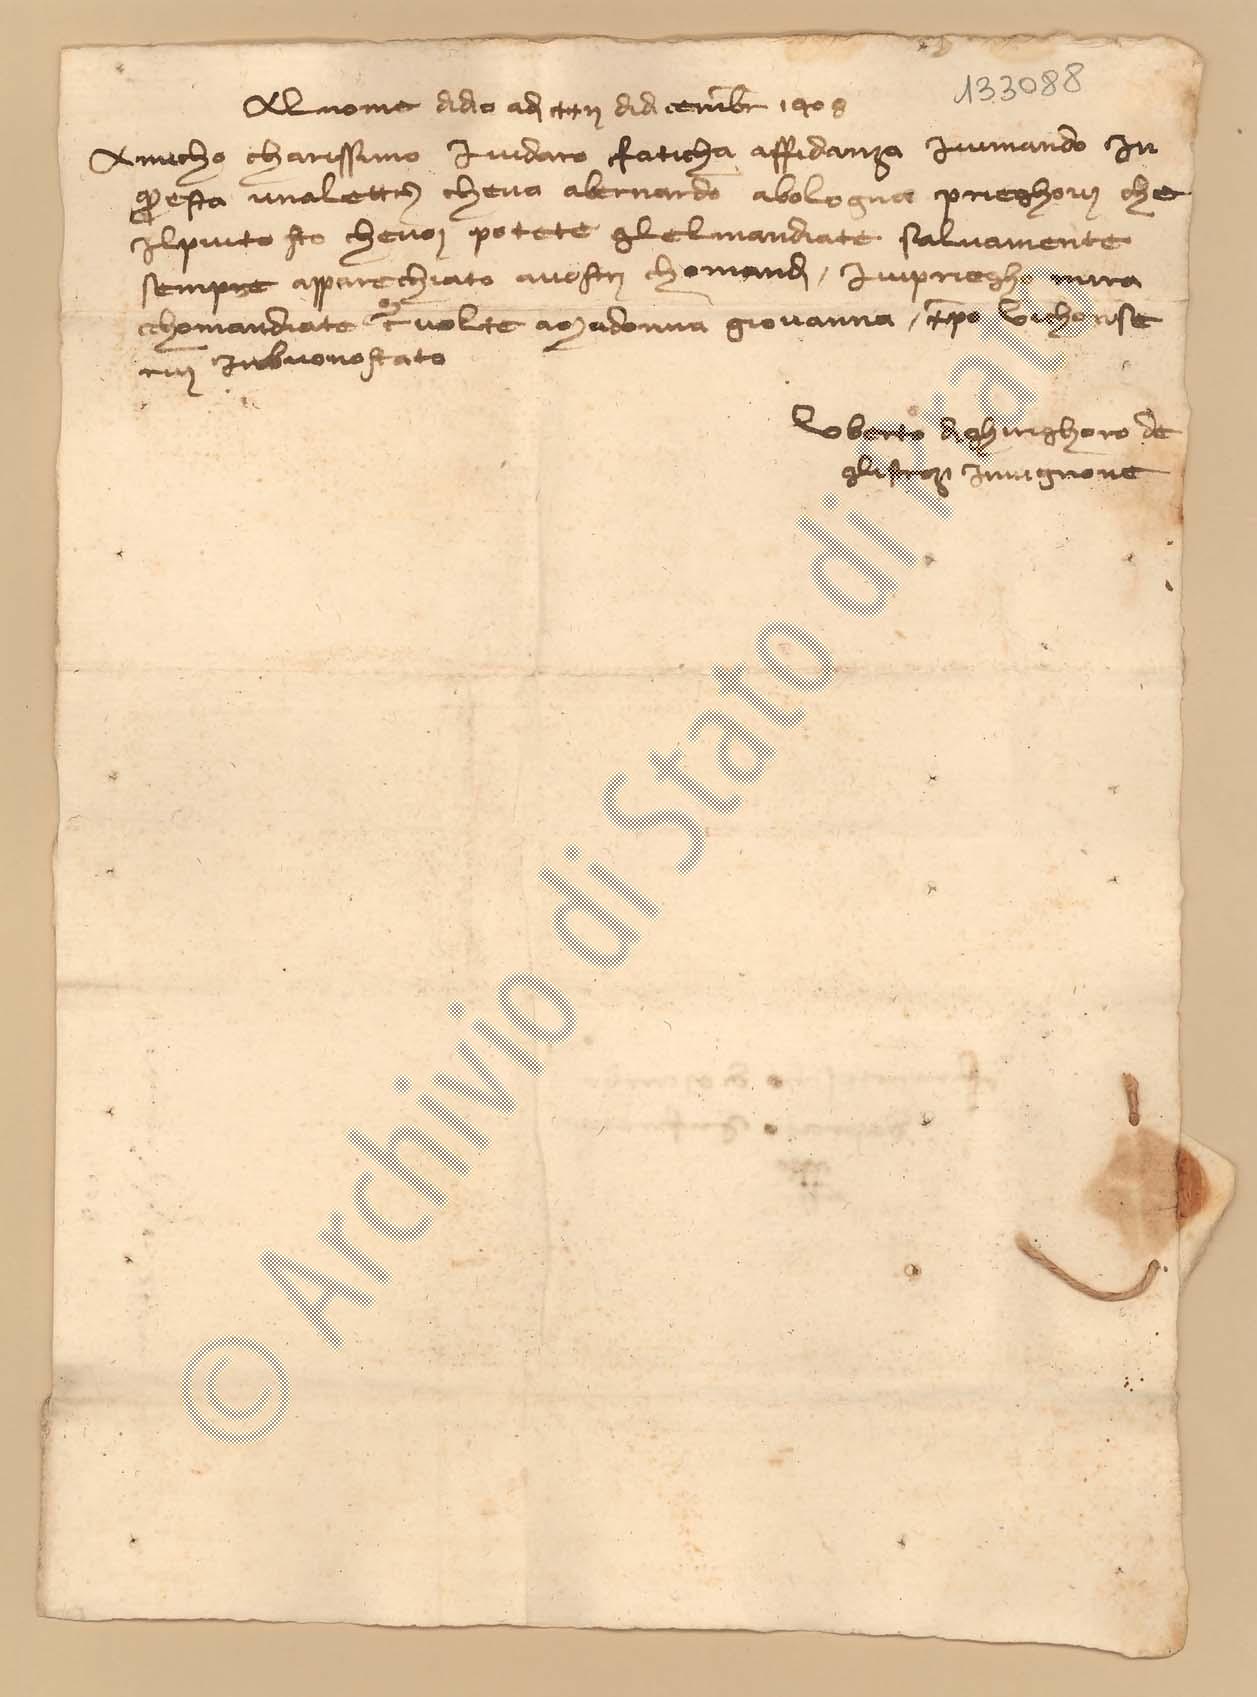 133088
Al nome di dio adj xxij di dicembr 1408
Amicho charissimo Ividaro faticha affidanza Ivimando In
questa una lettera cheva abernardo abologna prieghovi che
Ilpiutosto chevoi potete glelmandiate salvamente
sempre apparechiato avostri chomandi / Ivipriegho mira
chomandiate volte a madonna giovanna / xpo vichonse
rvi in buono stato
Uberto di ghirighoro de
gli Invignone
© Archivio di Stato di Prato